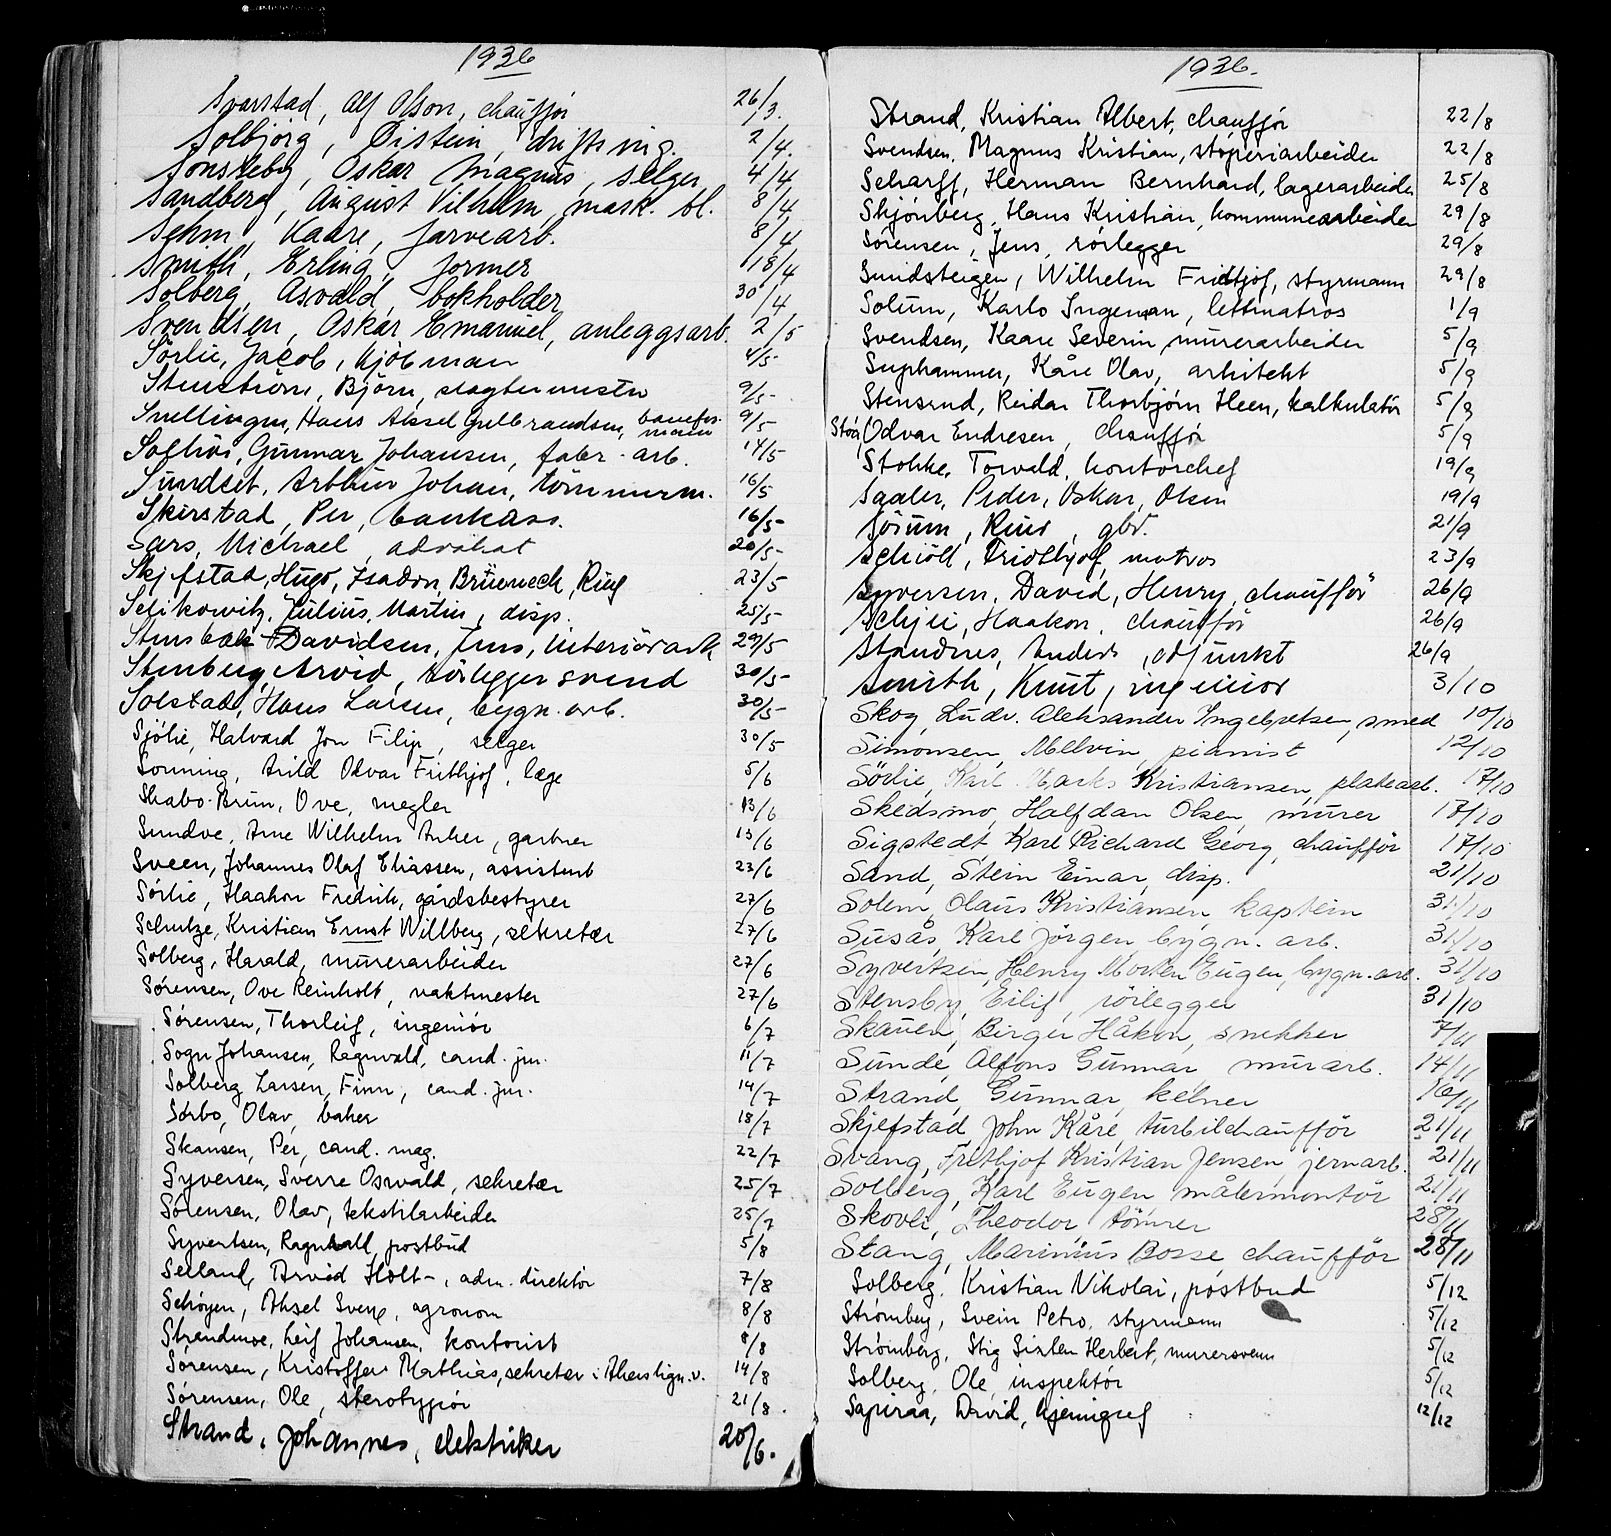 1936
Svarstad, Alf Olson, chauffør 26/3.
Solbjørg, Øistein, drifts ing. 2/4.
Sønsteby, Oskar Magnus, selger 4/4
Sandberg, August Vilhelm, mask. bl. 8/4
Sehm, Kaare, farvearb. 8/4
Smith, Erling, former 18/4
Solberg, Asvald, bokholder 30/4
Svendsen, Oskar Emanuel, anleggsarb. 2/5
Sörlie, Jacob, kjöbman 4/5
Stenström, Björn, slagtermester 9/5
Snellingen, Hans Aksel Gulbrandsen, baneformann 9/5
Solhöi, Gunnar Johansen, fabr. arb. 14/5
Sundset, Arthur Johan, tömmerm. 16/5
Skirstad, Per, bankass. 16/5
Sars, Michael, advokat 20/5
Skjefstad, Hugo, Isadon, Brüneech, Ring 23/5
Selikowitz, Julius, Martin, disp. 25/5
Stensbak Davidsen, Jens, interiörark 29/5
Stenberg, Arvid, rörleggersvend 30/5
Solstad, Hans Larsen, bygn. arb. 30/5
Sjölie, Halvard Jon Filip, selger 30/5
Sonning, Arild Odvar Frithjof, læge 5/6
Skabo-Brun, Ove, megler 13/6
Sundve, Arne Wilhelm Anker, gartner 13/6
Sveen, Johannes Olaf Eliassen, assistent 23/6
Sørlie, Haakon Fredrik, gårdsbestyrer 27/6
Schultze, Kristian Ernst Willberg, sekretær 27/6
Solberg, Harald, murerarbeider 27/6
Sørensen, Ove Reinholt, vaktmester 27/6
Sørensen, Thorleif, ingeniør 6/7
Sogn Johansen, Ragnvald, cand. jur. 11/7
Solberg Larsen, Finn, cand. jur. 14/7
Sørbo, Olav, baker 18/7
Skansen, Per, cand. mag. 22/7
Syversen, Sverre Oswald, sekretær 25/7
Sørensen, Olav, tekstilarbeider 25/7
Syvertsen, Ragnvald, postbud 5/8
Selland, Arvid Holt-, adm. direktør 7/8
Schøyen, Aksel Sveng, agronom 8/8
Strandmoe, Leif Johansen, kontorist 8/8
Sørensen, Kristoffer Mathias, sekretær i Akers lign.v. 14/8
Sørensen, Ole, sterotypiør 21/8.
Strand, Johannes, elektriker 20/6.
1936.
Strand, Kristian Albert, chauffør 22/8
Svendsen, Magnus Kristian, støperiarbeider 22/8
Scharff, Herman Bernhard, lagerarbeider 25/8
Skjønberg, Hans Kristian, kommunearbeider 29/8
Sørensen, Jens, rørlegger 29/8
Smidsteigen, Wilhelm Fridtjof, styrmann 29/8
Solum, Karlo Ingeman, lettmatros 1/9
Svendsen, Kaare Severin, murerarbeider 5/9
Suphammer, Kåre Olav, arkitekt 5/9
Stensrud, Reidar Thorbjørn Heen, kalkulatør 5/9
Støa, Odvar Endresen, chauffør 5/9
Stokke, Torvald, kontorchef 19/9
Saaler, Peder, Oskar, Olsen 19/9
Sörum, Rius, gbr. 21/9
Schiöll, Fridthjof, matros 23/9
Syversen, David, Henry, chaufför 26/9
Schjie, Haakon, chaufför 26/9
Standnes, Anders, adjunkt 26/9
Smith, Knut, ingeniør 3/10
Skog, Ludv. Aleksander Ingebretsen, smed 10/10
Simonsen, Melvin, pianist 12/10
Sörlie, Karl Marks Kristiansen, platearb. 17/10
Skedsmo, Halfdan Olsen, murer 17/10
Sigstedt, Karl Richard Georg, chaufför 17/10
Sand, Stein Einar, disp. 21/10
Solem, Olaus Kristiansen, kaptein 31/10
Susås, Karl Jörgen, bygn. arb. 31/10
Syvertzen, Henry Morten Eugen, bygn. arb. 31/10
Stensby, Eilif, rörlegger 31/10
Skauen, Birger Håkon, snekker 7/11
Sunde, Alfons Gunnar, murarb. 14/11
Strand, Gunnar, kelner 16/11
Skjefstad, John Kåre, turbilchaufför 21/11
Svang, Frithjof Kristian Jensen, jernarb. 21/11
Solberg, Karl Eugen, målermontör 21/11
Skovli, Theodor, tömrer 28/11
Stang, Marinius Bosse, chaufför 28/11
Solberg, Kristian Nikolai, postbud 5/12
Strømberg, Svein Petro, styrmann 5/12
Strømberg, Stig Sixten Herbert, murersvenn 5/12
Solberg, Ole, inspektør 5/12
Sapiraa, David, 12/12